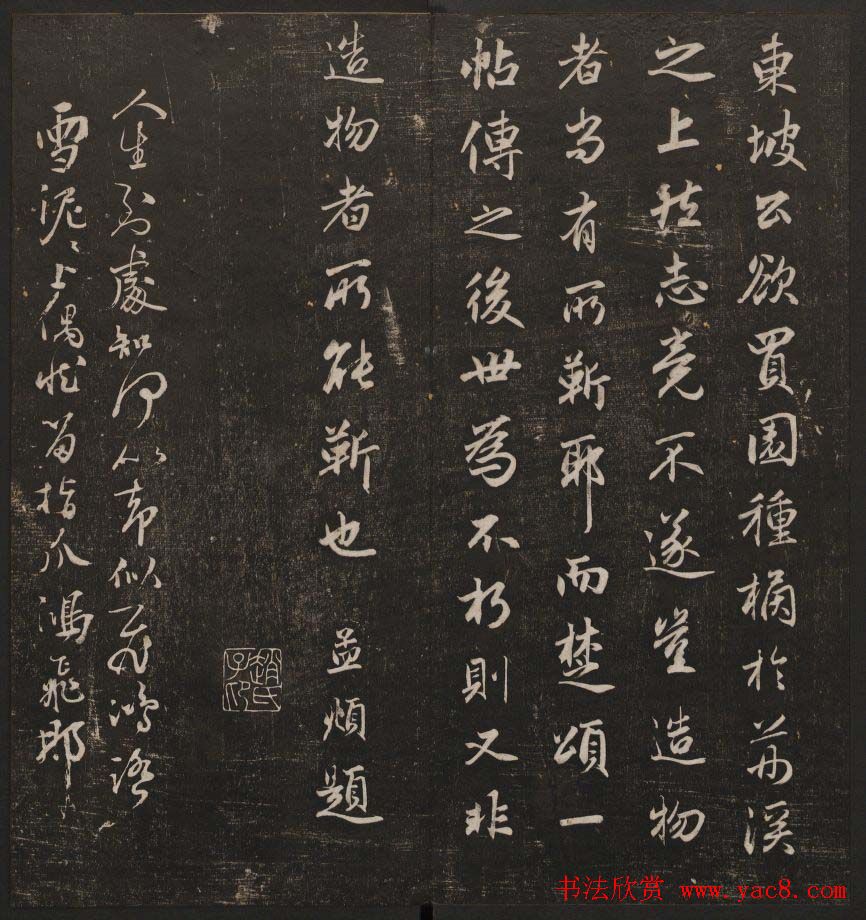 東坡公欲買園種橘於荊溪
之上然志竟不遂豈造物
者尚有所靳耶而楚頌一
帖傳之後世為不朽則又非
造物者所能靳也 孟頫題
趙氏子印
人生到處知何似却似飛鴻踏
雪泥泥上偶然留指爪鴻飛那
书法欣赏 www.yac8.com